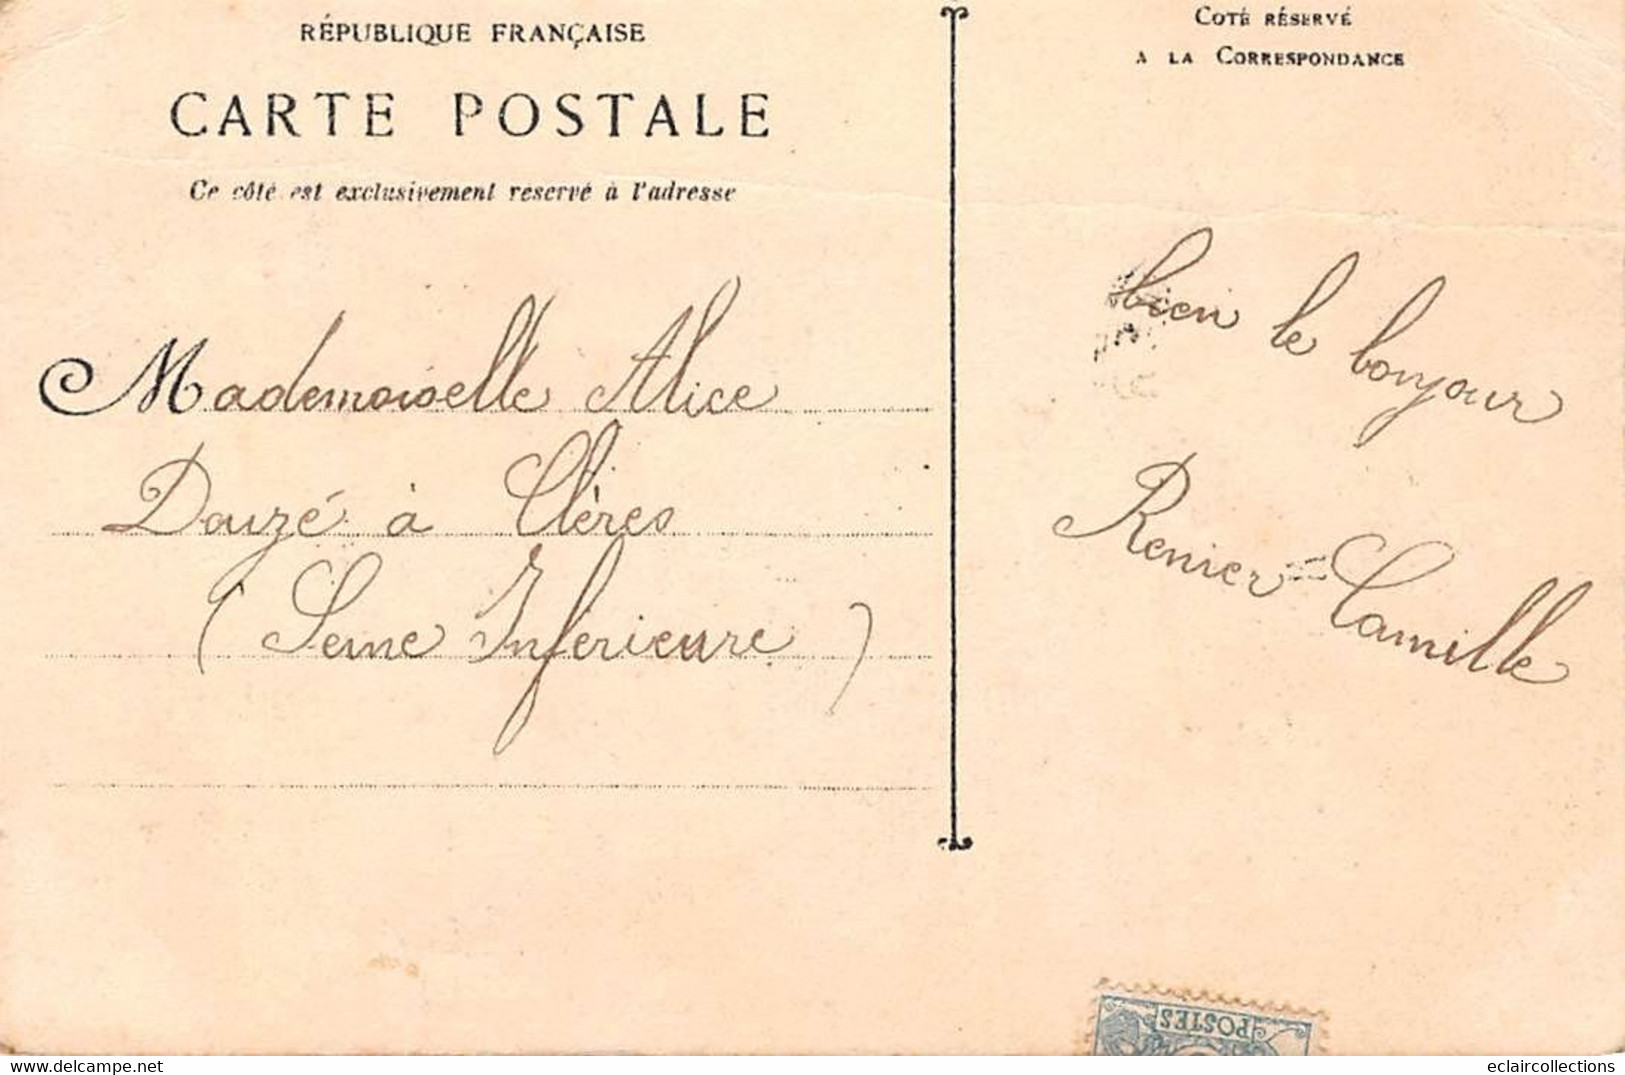 RÉPUBLIQUE FRANÇAISE
CARTE POSTALE
Ce côté est exclusivement reservé à l'adresse
Mademoiselle Alice
Douzé à Clères
(Seine Inferieure)
COTÉ RÉSERVÉ
A LA CORRESPONDANCE
bien le bonjour
Renier = Camille
POSTES
eclaircollections